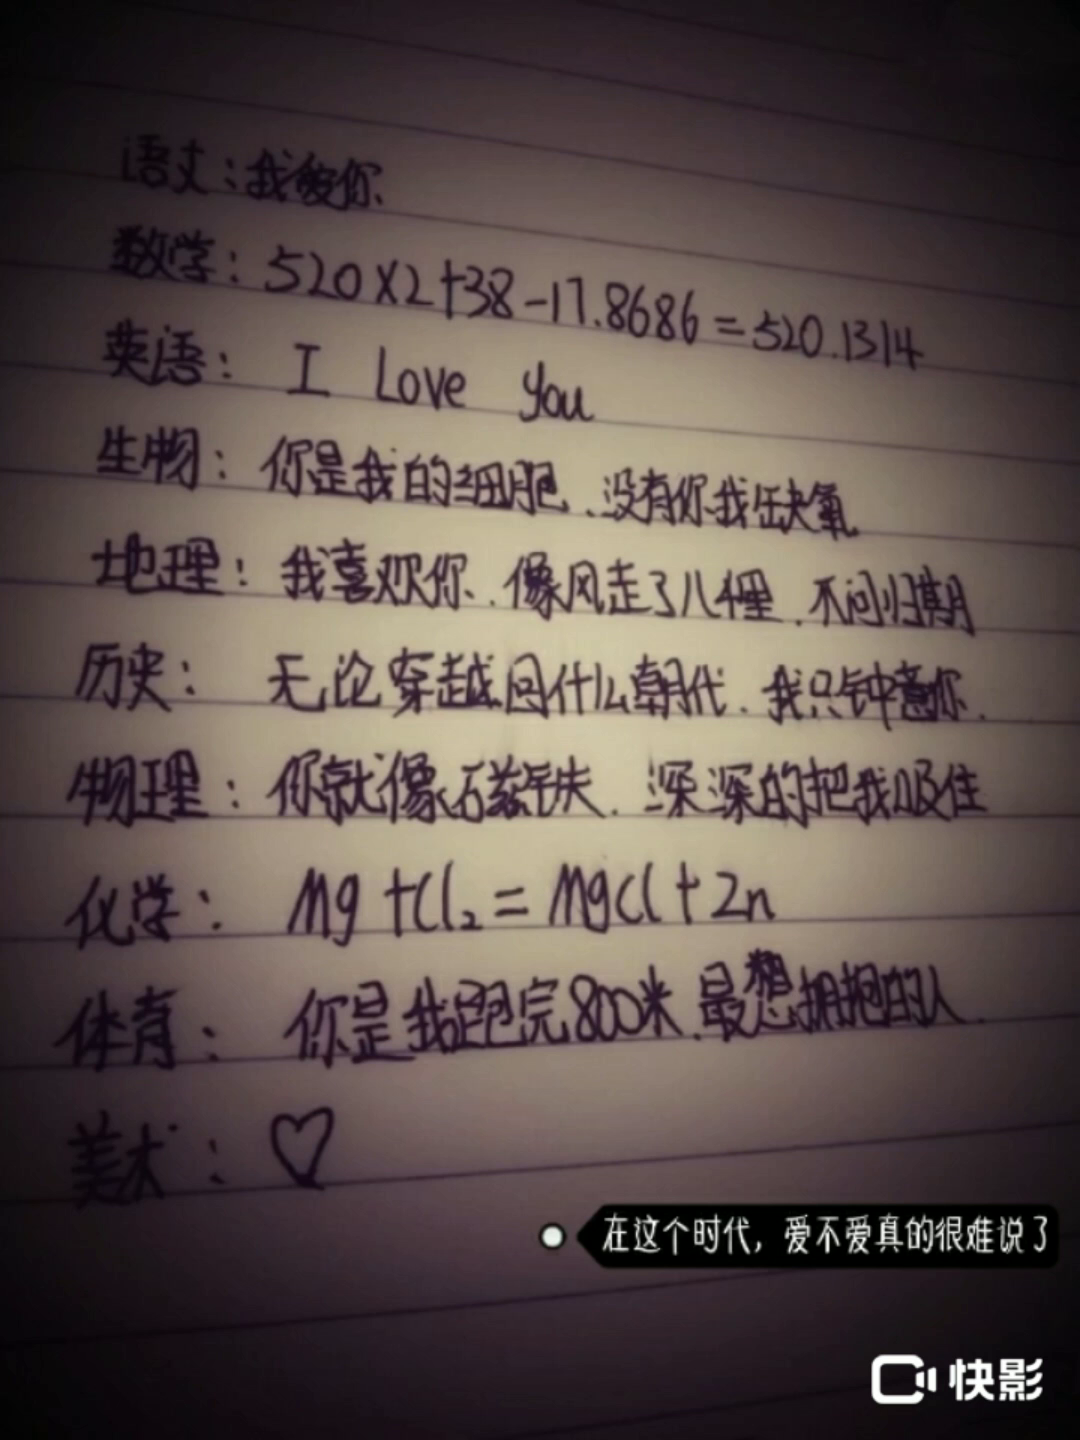 语文：我爱你
数学：520X2+38-17.8686=520.1314
英语： I Love you
生物：你是我的细胞、没有你我缺氧
地理：我喜欢你、像风走了八千里、不问归期
历史：无论穿越回什么朝代、我只钟意你.
物理：你就像磁铁、深深的把我吸住
化学： Mg+Cl₂=MgCl+Zn
体育：你是我跑完800米、最想拥抱的人.
美术：♡
在这个时代，爱不爱真的很难说了
快影